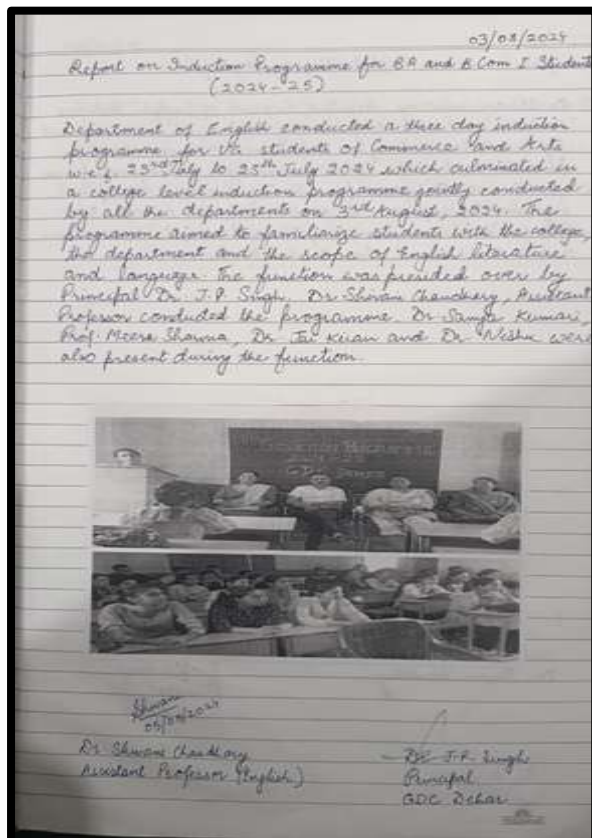 03/08/2024
Report on Induction Programme for BA and B.Com I Students
(2024-25)
Department of English conducted a three day induction
programme for UG students of Commerce and Arts
w.e.f. 23rd July to 25th July 2024 which culminated in
a college level induction programme jointly conducted
by all the departments on 3rd August, 2024. The
programme aimed to familiarize students with the college,
the department and the scope of English literature
and language. The function was presided over by
Principal Dr. J.P. Singh. Dr Shivani Chaudhary, Assistant
Professor conducted the programme. Dr Sanya Kumari,
Prof. Meera Sharma, Dr Jai Kiran and Dr. Nishu were
also present during the function.
Shivani
03/08/2024
Dr Shivani Chaudhary
Assistant Professor (English)
Dr J.P. Singh
Principal
GDC